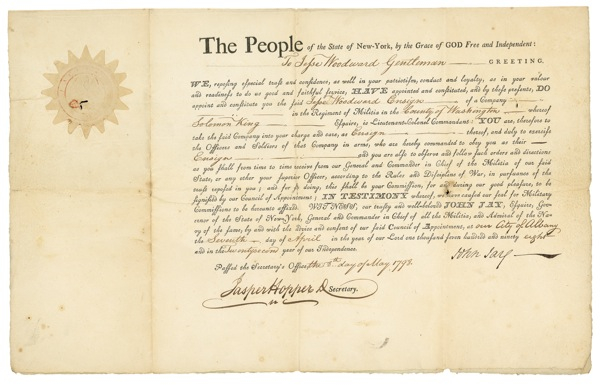 The People of the State of New-York, by the Grace of GOD Free and Independent:
To Jesse Woodward Gentleman GREETING.
WE, reposing especial trust and confidence, as well in your patriotism, conduct and loyalty, as in your valour
and readiness to do us good and faithful service, HAVE appointed and constituted, and by these presents, DO
appoint and constitute you the said Jesse Woodward Ensign of a Company
in the Regiment of Militia in the County of Washington whereof
Solomon King Esquire, is Lieutenant-Colonel Commandant: YOU are, therefore to
take the said Company into your charge and care, as Ensign thereof, and duly to exercise
the Officers and Soldiers of that Company in arms, who are hereby commanded to obey you as their
Ensign and you are also to observe and follow such orders and directions
as you shall from time to time receive from our General and Commander in Chief of the Militia of our said
State, or any other your superior Officer, according to the Rules and Discipline of War, in pursuance of the
trust reposed in you; and for so doing, this shall be your Commission, for and during our good pleasure, to be
signified by our Council of Appointment; IN TESTIMONY whereof, we have caused our seal for Military
Commissions to be hereunto affixed. WITNESS, our trusty and well-beloved JOHN JAY, Esquire, Gov-
ernor of the State of New-York, General and Commander in Chief of all the Militia, and Admiral of the Na-
vy of the same, by and with the advice and consent of our said Council of Appointment, at our City of Albany
the Seventh day of April in the year of our Lord one thousand seven hundred and ninety eight
and in the Twenty second year of our Independence.
John Jay
Passed the Secretary's Office the 8th day of May 1798.
Jasper Hopper D Secretary.